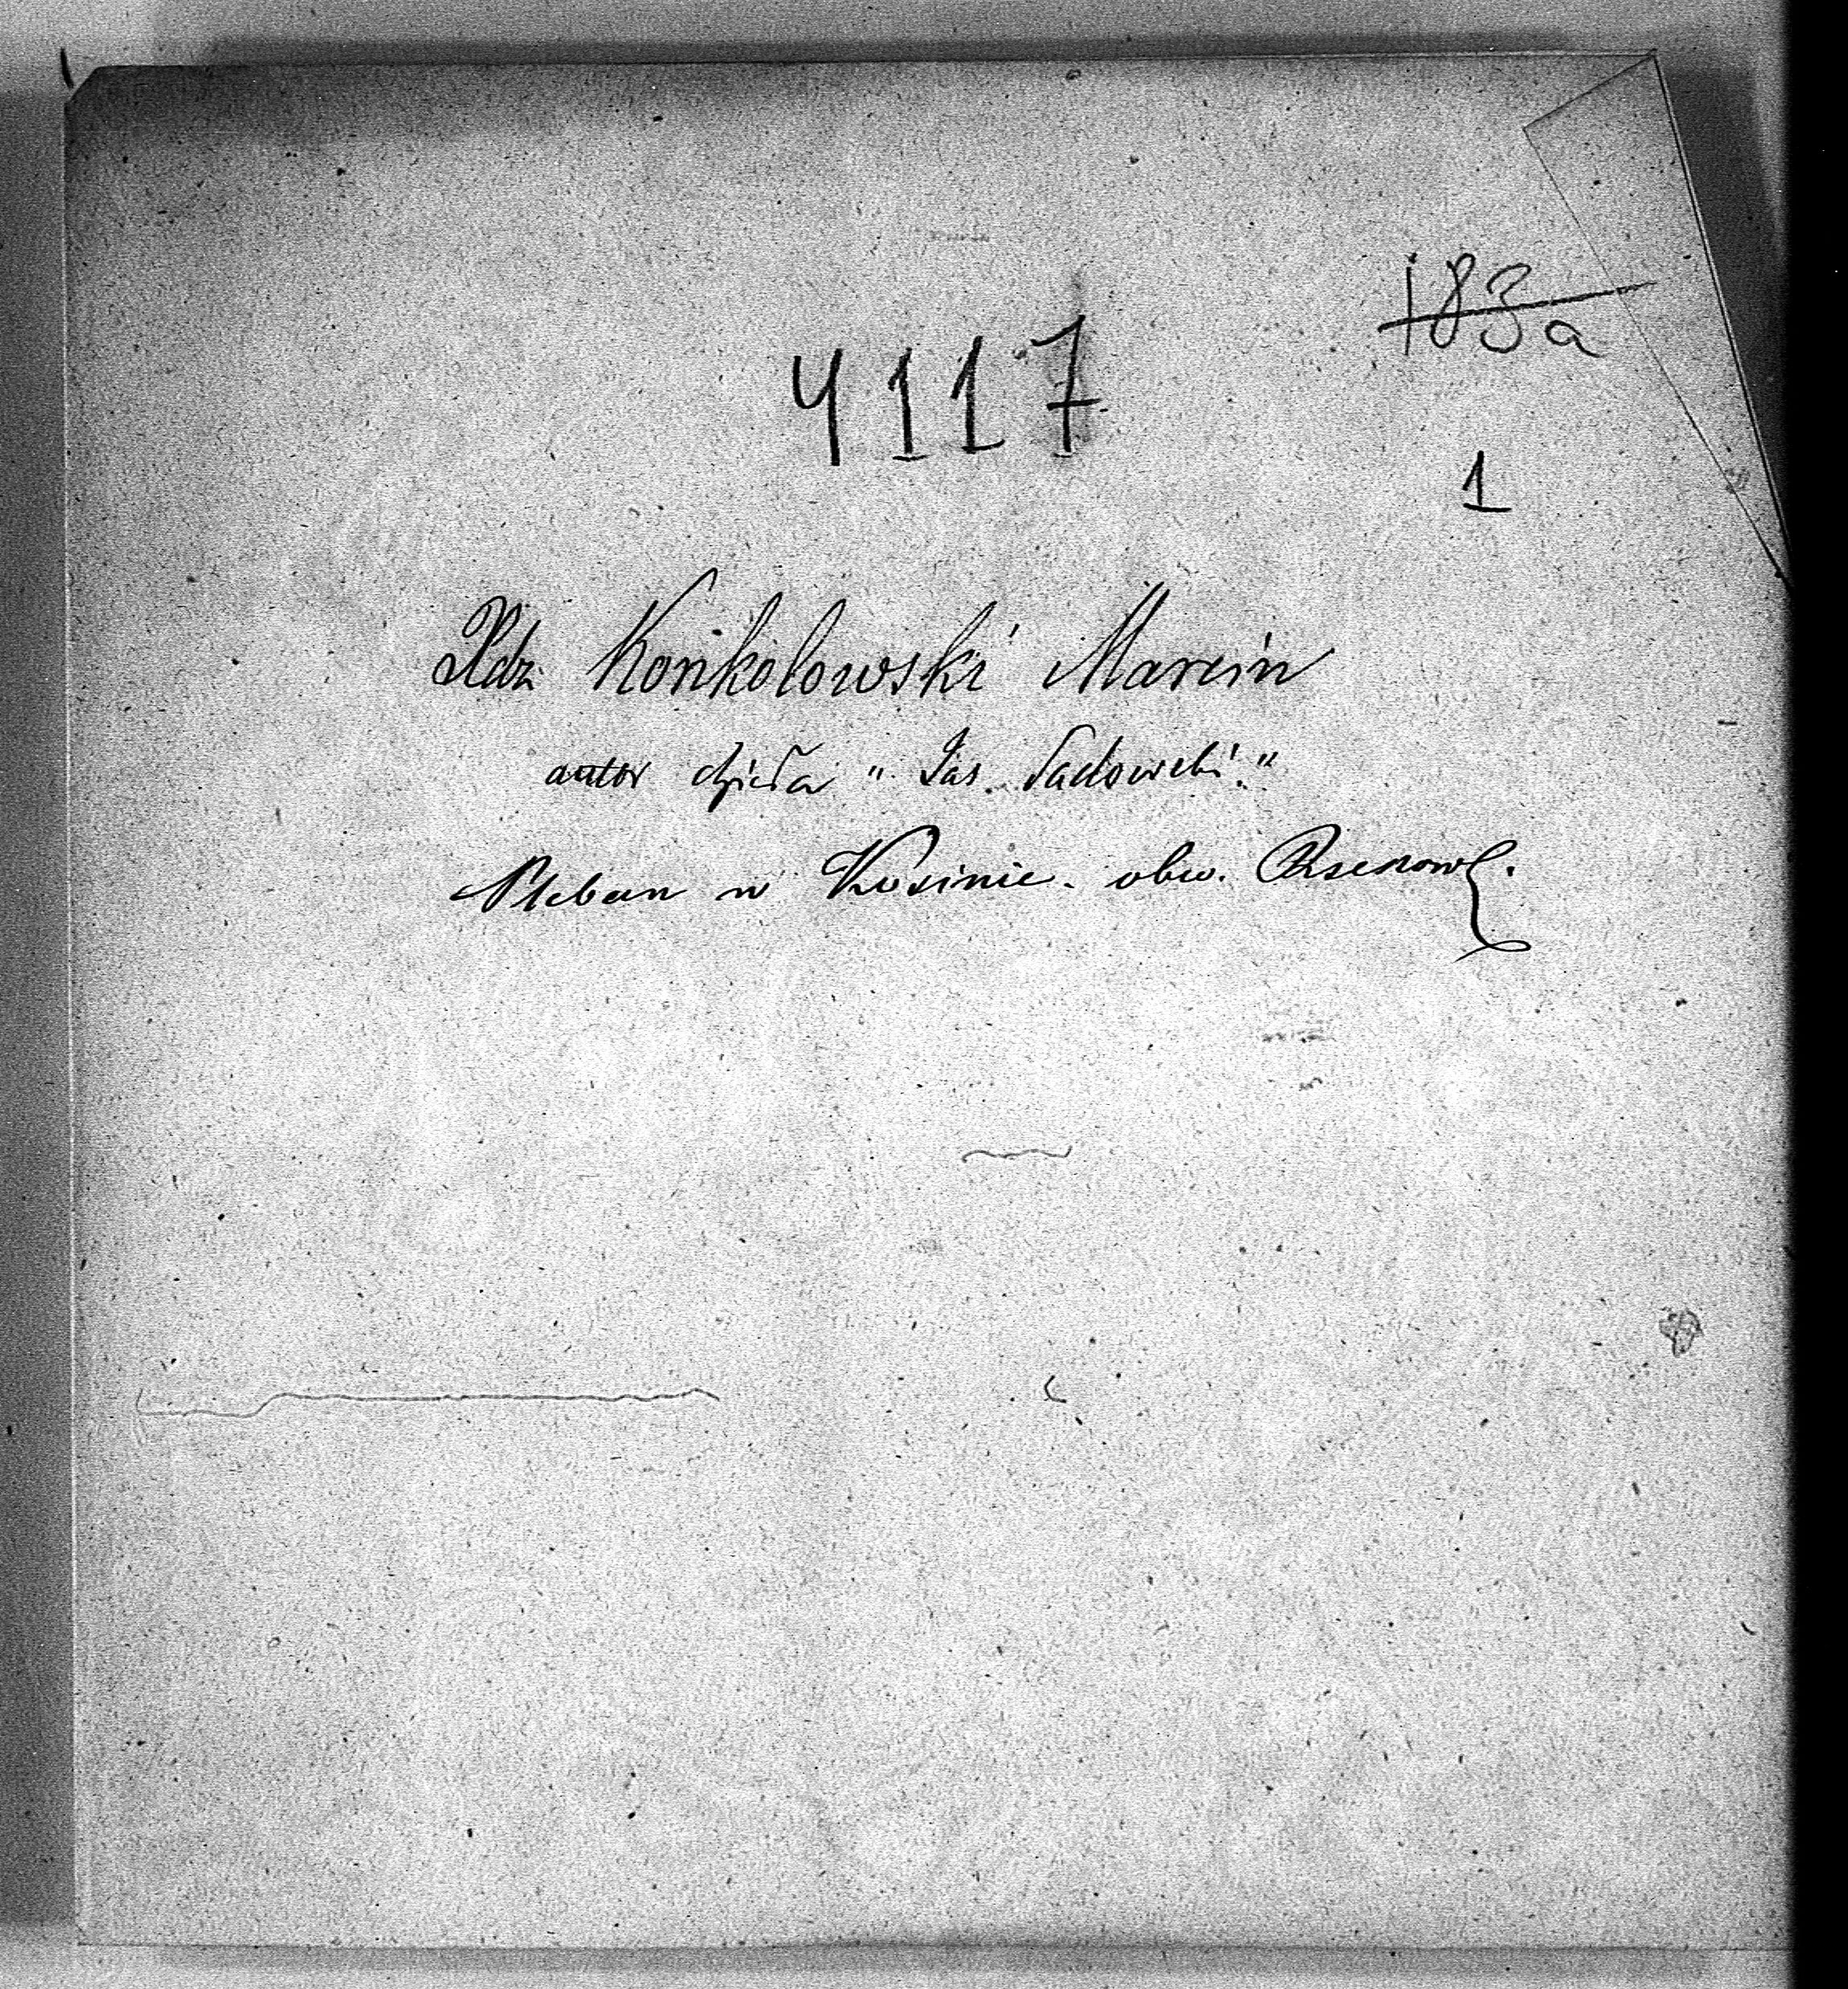 183a
4117
1
Xdz Konkolowski Marcin
autor dzieła " Jaś Sadowski."
Pleban w Kosinie. obw. Rzeszow.